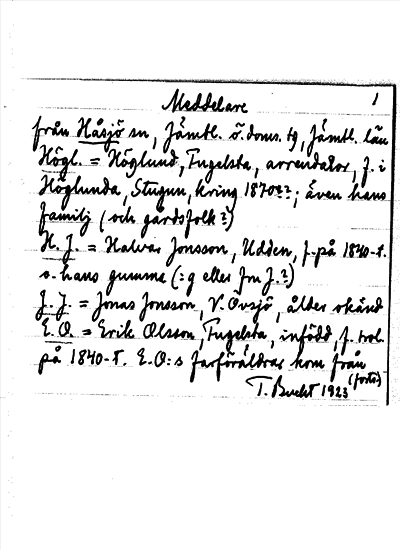 Meddelare 1
från Håsjö sn, Jämtl. ö. doms. tg, Jämtl. län
Högl. = Höglund, Fugelsta, arrendator, f. i
Höglunda, Stugun, kring 1870??; även hans
familj (och gårdsfolk?)
H. J. = Halvar Jonsson, Udden, f. på 1840-t.
o. hans gumma (:g eller fru J.?)
J. J. = Jonas Jonsson, V. Övsjö, ålder okänd
E. O. = Erik Olsson, Fugelsta, infödd, f. trol.
på 1840-t. E. O:s farföräldrar kom från
(forts)
T. Bucht 1923